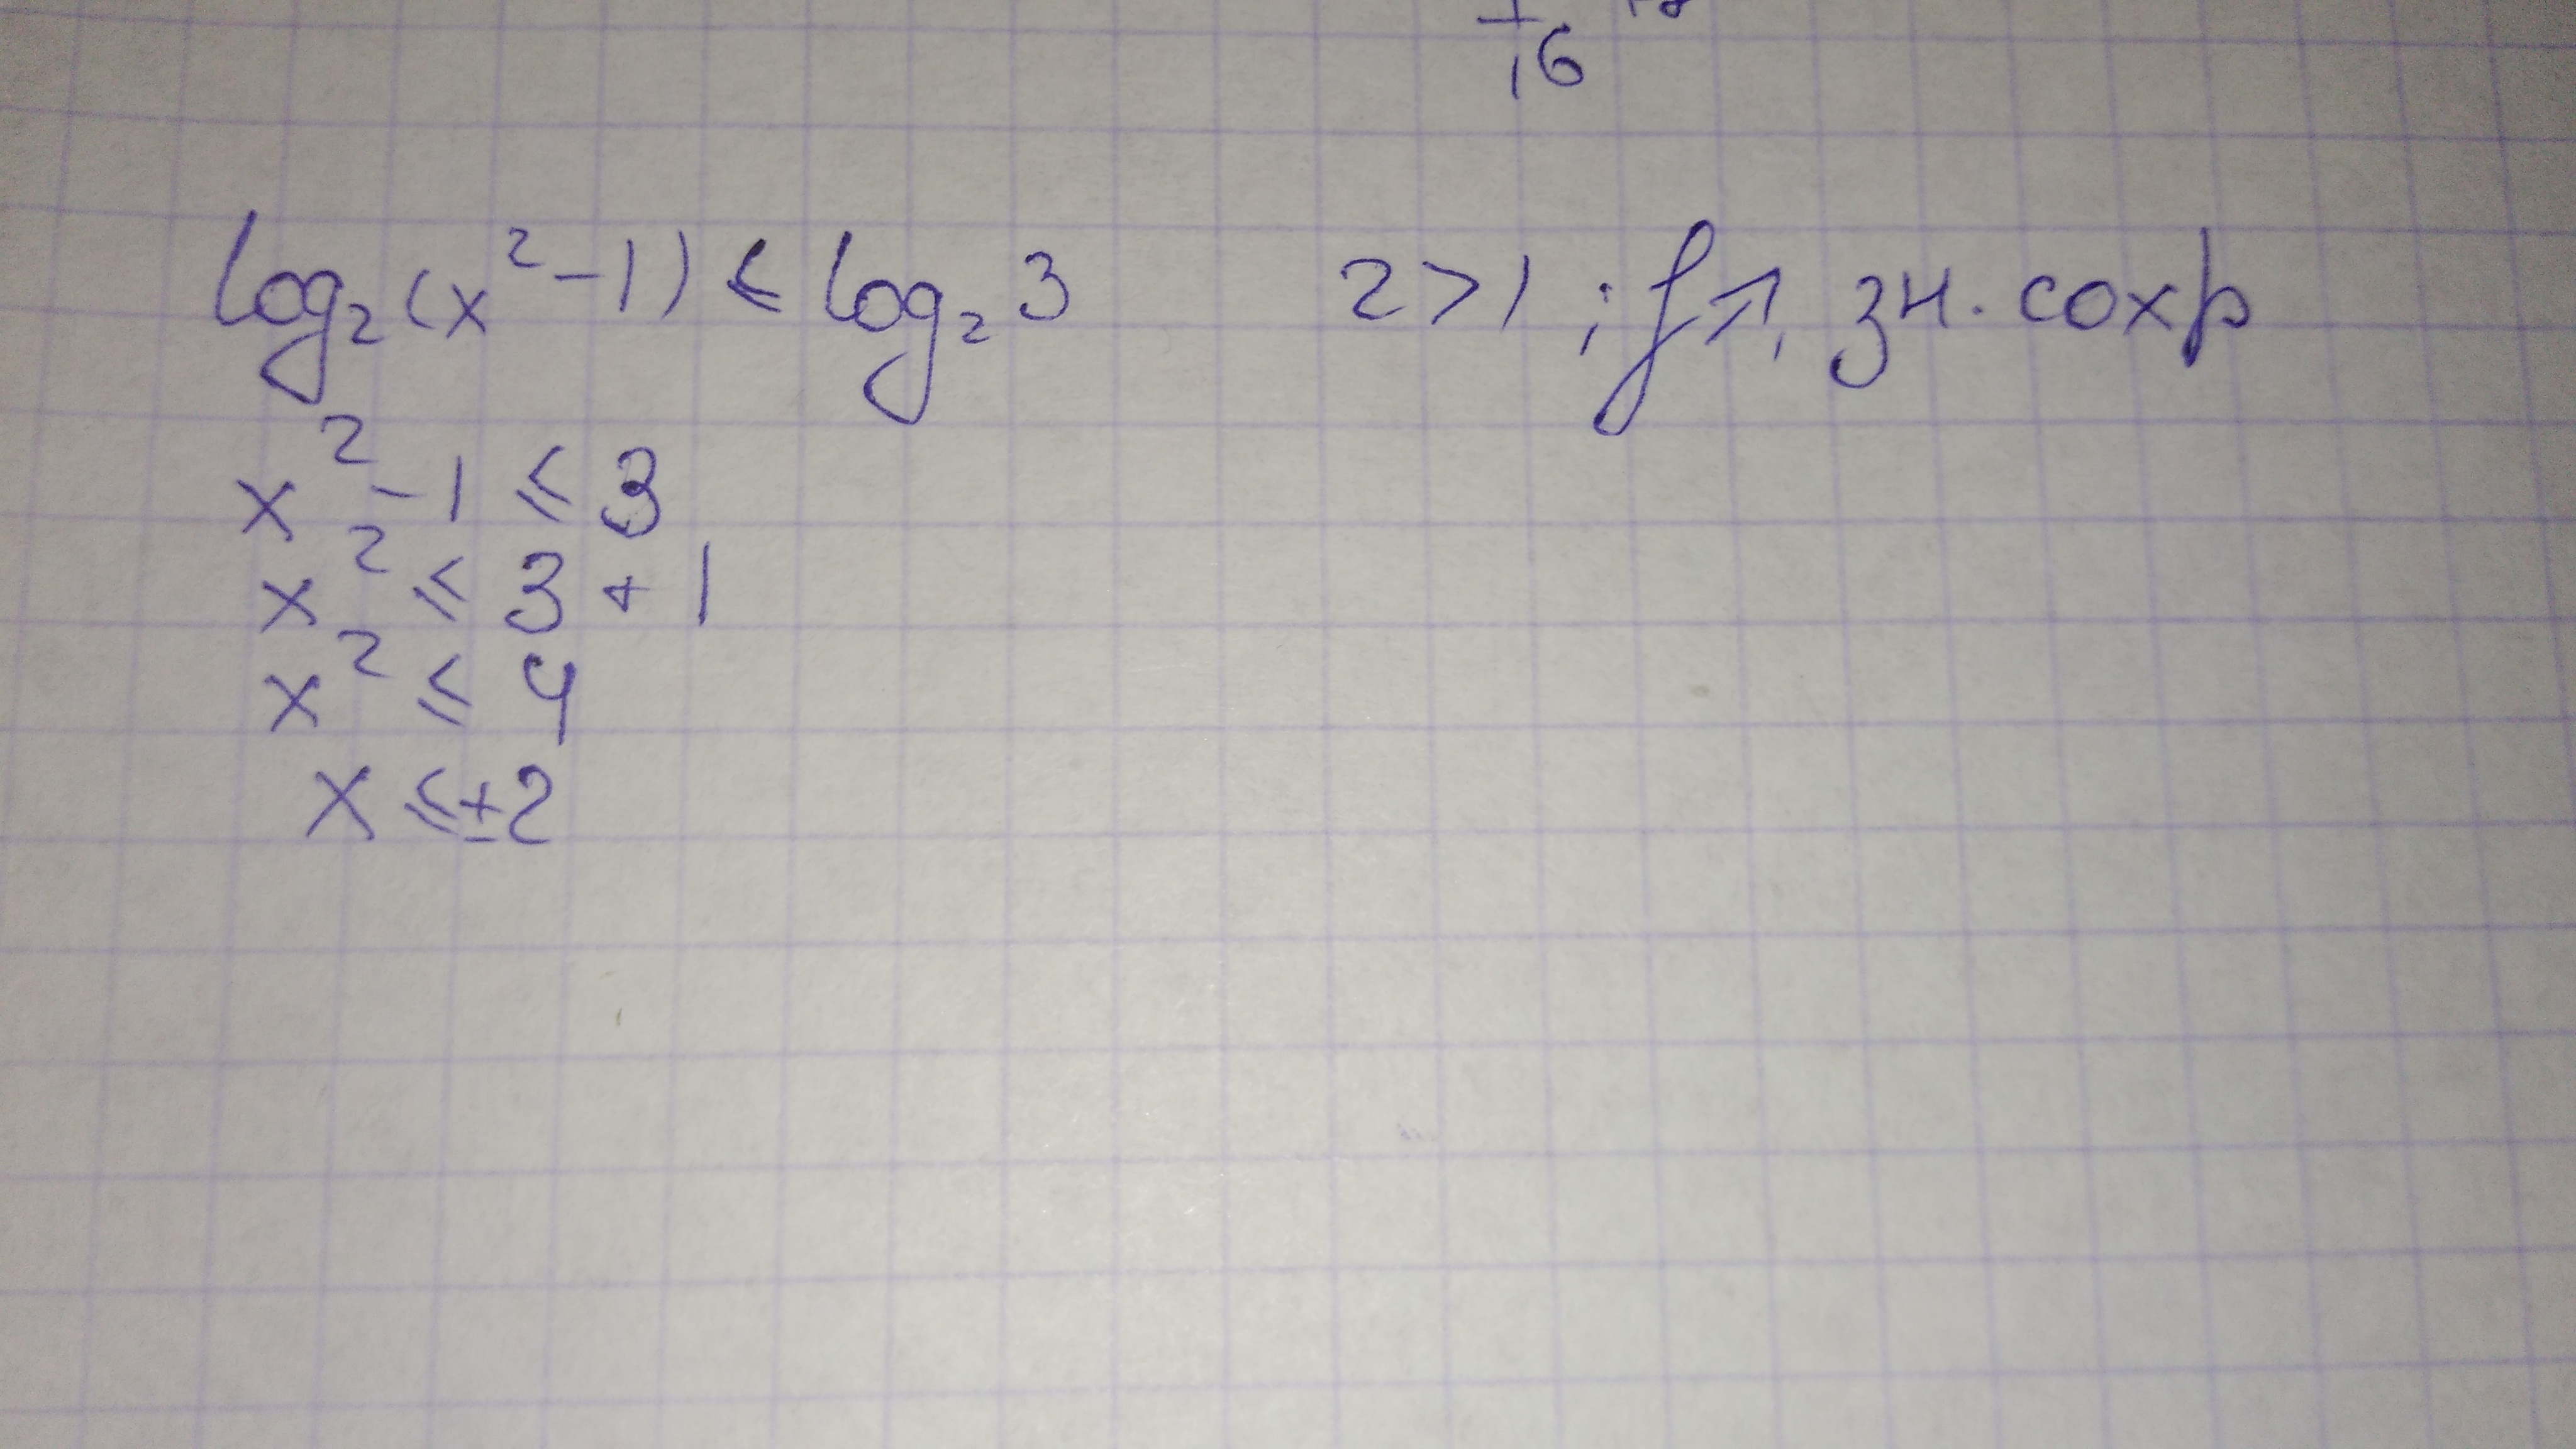 1/16
log₂(x²-1) ≤ log₂3 2>1; f↗, зн. сохр
x²-1 ≤ 3
x² ≤ 3 + 1
x² ≤ 4
x ≤ ±2